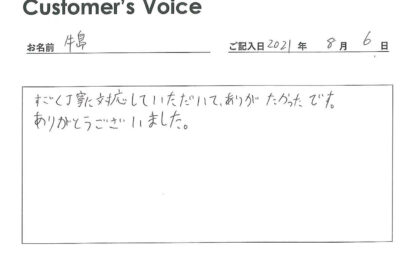 Customer's Voice
お名前 牛島
ご記入日 2021 年 8 月 6 日
すごく丁寧に対応していただいて、ありがたかったです。
ありがとうございました。